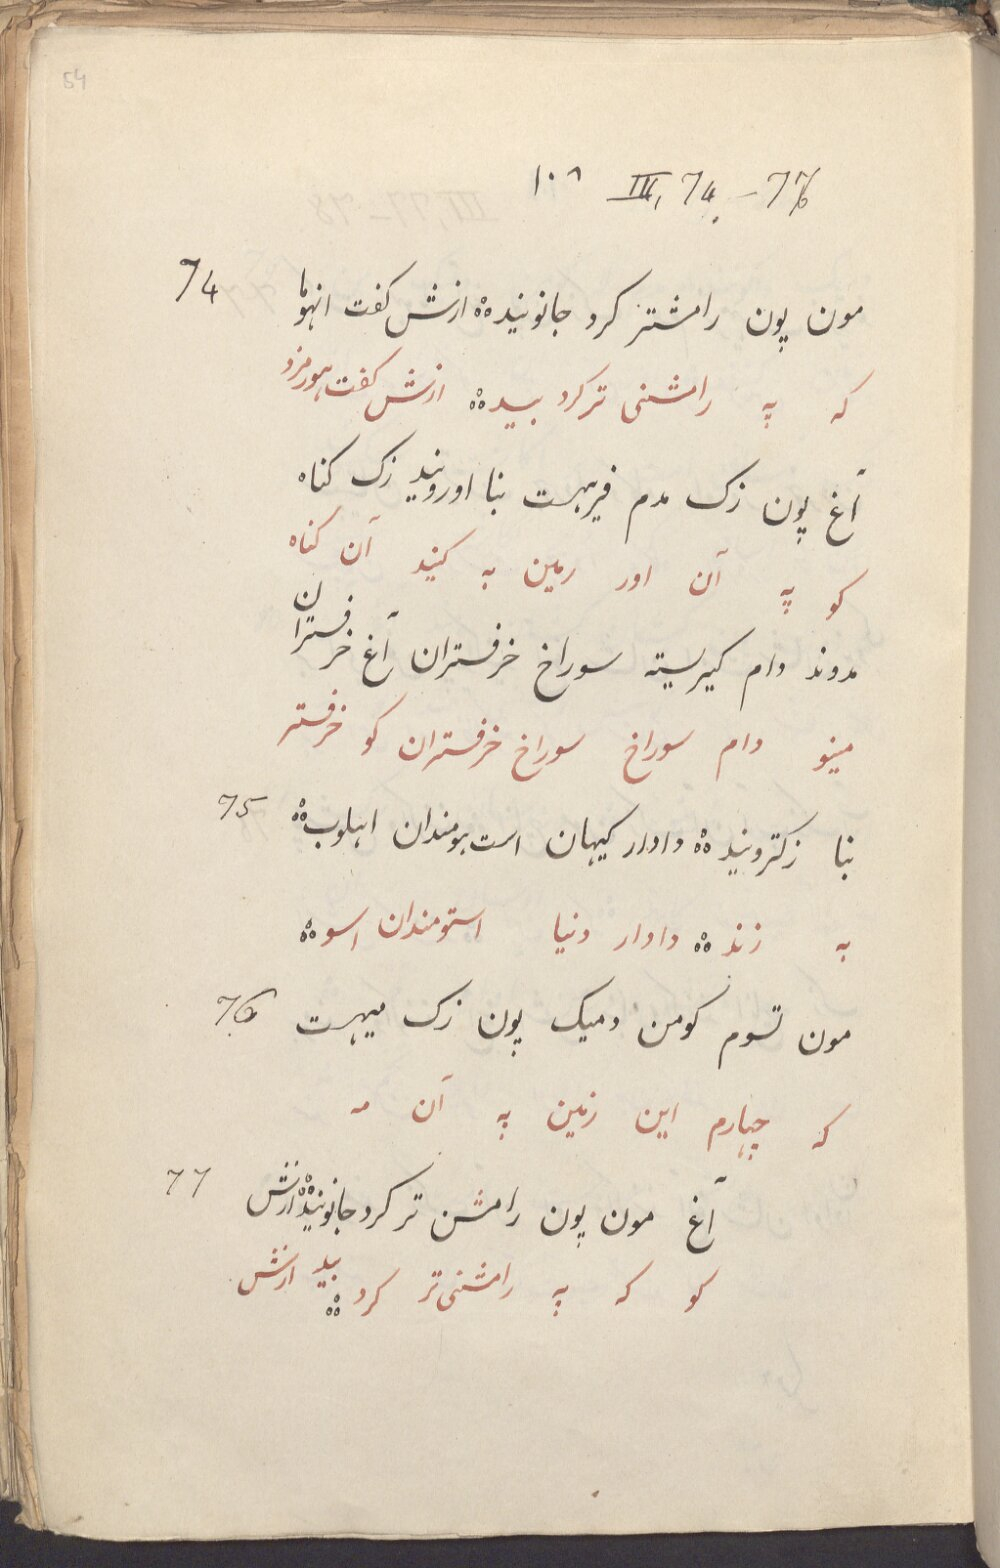 54
III, 74 – 76 ۱۰۸
74 مون پون رامشتر کرد جانونید ۀۀ ازش کفت انهوما
که په رامشنی تر کرد بید ۀۀ ازش کفت هورمزد
آغ پون زک مدم فریهست بنا اورونید زک کناه
کو په آن اور زمین به کنید آن کناه
مدوند دام کیریسته سوراخ خرفستران آغ خرفستران
مینو دام سوراخ سوراخ خرفستران کو خرفستر
75 بنا زکترونید ۀۀ دادار کیهان است بومندان اهلوب ۀۀ
به زند ۀۀ دادار دنیا استومندان اسو ۀۀ
76 مون تسوم کومن دمیک پون زک میهست
که چهارم این زمین په آن مه
77 آغ مون پون رامشن تر کرد جانونید ۀۀ ازش
کو که په رامشنی تر کرد بید ۀۀ ازش